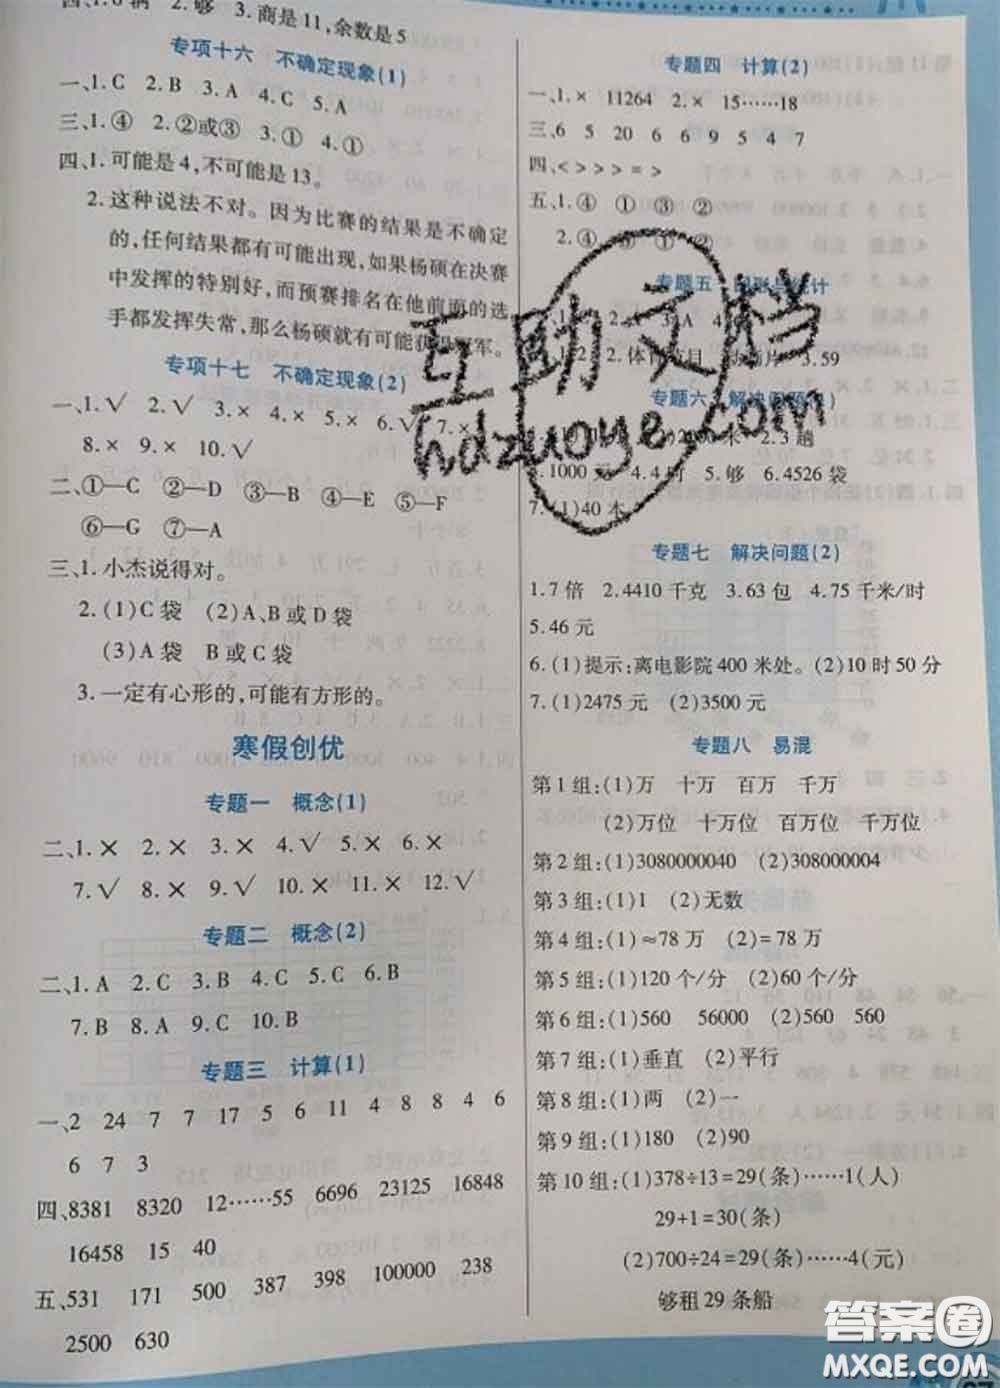 四、1.6 辆 2.够 3.商是11,余数是5
专项十六 不确定现象(1)
一、1.C 2.B 3.A 4.C 5.A
三、1.④ 2.②或③ 3.① 4.①
四、1.可能是4,不可能是13。
2.这种说法不对。因为比赛的结果是不确定
的,任何结果都有可能出现,如果杨硕在决赛
中发挥的特别好,而预赛排名在他前面的选
手都发挥失常,那么杨硕就有可能获得冠军。
专项十七 不确定现象(2)
一、1.√ 2.√ 3.× 4.× 5.× 6.√ 7.×
8.× 9.× 10.√
二、①—C ②—D ③—B ④—E ⑤—F
⑥—G ⑦—A
三、1.小杰说得对。
2.(1)C袋 (2)A、B或D袋
(3)A袋 B或C袋
3.一定有心形的,可能有方形的。
寒假创优
专题一 概念(1)
二、1.× 2.× 3.× 4.√ 5.× 6.×
7.√ 8.× 9.√ 10.× 11.× 12.√
专题二 概念(2)
二、1.A 2.C 3.B 4.C 5.C 6.B
7.B 8.A 9.C 10.B
专题三 计算(1)
一、2 24 7 7 17 5 6 11 4 8 8 4 6
6 7 3
四、8381 8320 12……55 6696 23125 16848
16458 15 40
五、531 171 500 387 398 100000 238
2500 630
专题四 计算(2)
一、1.× 11264 2.× 15……18
三、6 5 20 6 6 9 5 4 7
四、< > > > = >
五、1.④ ① ③ ②
2.④ ③ ① ②
专题五 图形与统计
一、1. 2.A 3.A 4.
1.2 2.体育节目 动画片 3.59
专题六 解决问题(1)
2.3趟
3.1000元 4.4时 5.够 6.4526袋
7.(1)40本
专题七 解决问题(2)
1.7倍 2.4410千克 3.63包 4.75千米/时
5.46元
6.(1)提示:离电影院400米处。(2)10时50分
7.(1)2475元 (2)3500元
专题八 易混
第1组:(1)万 十万 百万 千万
(2)万位 十万位 百万位 千万位
第2组:(1)3080000040 (2)308000004
第3组:(1)1 (2)无数
第4组:(1)≈78万 (2)=78万
第5组:(1)120个/分 (2)60个/分
第6组:(1)560 56000 (2)560 560
第7组:(1)垂直 (2)平行
第8组:(1)两 (2)一
第9组:(1)180 (2)90
第10组:(1)378÷13=29(条)……1(人)
29+1=30(条)
(2)700÷24=29(条)……4(元)
够租29条船
互助文档
hdzuoye.com
答案圈
MXQE.COM